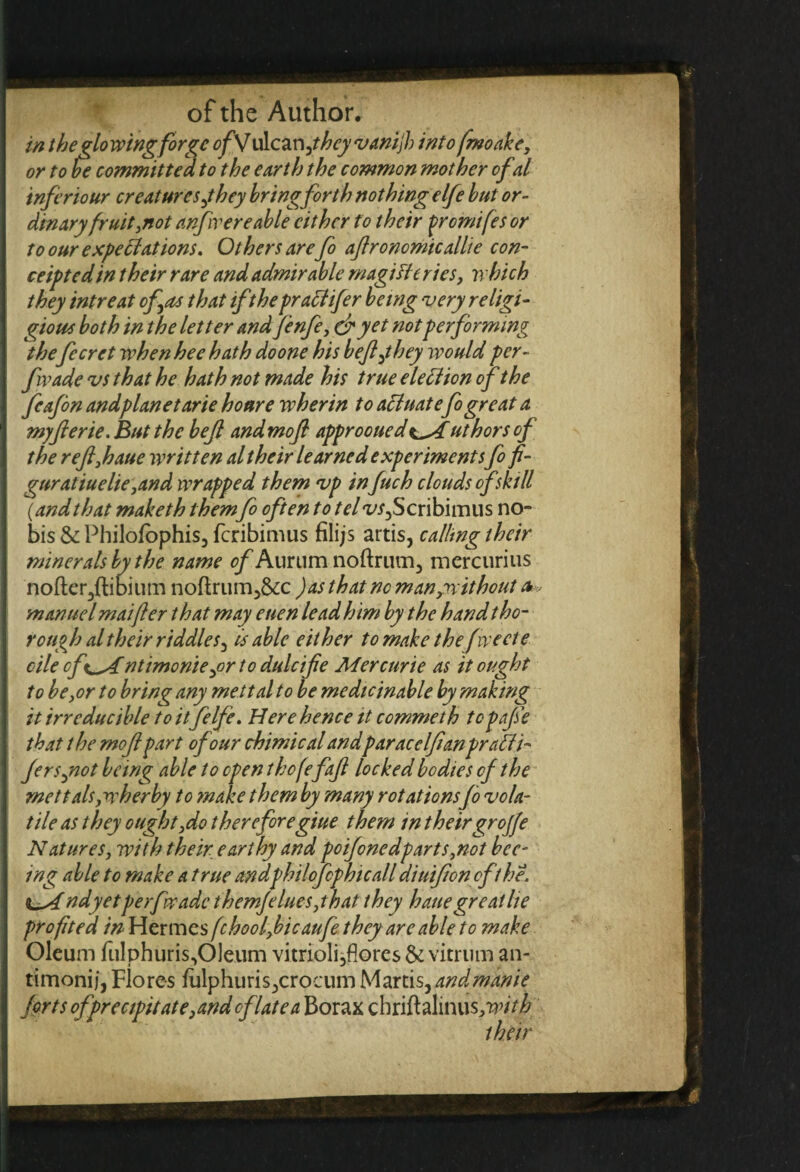 of the Author.
in the glowing forge of Vulcan, they vanish into smoake,
or to be committed to the earth the common mother of al
inferiour creatures, they bring forth nothing else but or-
dinary fruit, not answereable either to their promises or
to our expectations. Others are so astronomicallie con-
ceipted in their rare and admirable magisteries, which
they intreat of, as that if the practiser being very religi-
gious both in the letter and sense, & yet not performing
the secret when hee hath doone his best, they would per-
swade vs that he hath not made his true election of the
season and planetarie houre wherin to actuate so great a
mysterie. But the best and most approoued Authors of
the rest, haue written al their learned experiments so fi-
guratiuelie, and wrapped them vp in such clouds of skill
(and that maketh them so often to tel vs, Scribimus no-
bis & Philosophis, scribimus filijs artis, calling their
minerals by the name of Aurum nostrum, mercurius
noster, stibium nostrum, &c) as that no man, without a
manuel maister that may euen lead him by the hand tho-
rough al their riddles, is able either to make the sweete
oile of Antimonie, or to dulcifie Mercurie as it ought
to be, or to bring any mettal to be medicinable by making
it irreducible to it selfe. Here hence it commeth to passe
that the most part of our chimical and paracelsian practi-
sers, not being able to open those fast locked bodies of the
mettals, wherby to make them by many rotations so vola-
tile as they ought, do therefore giue them in their grosse
Natures, with their earthy and poisoned parts, not bee-
ing able to make a true and philosophicall diuision of the.
And yet perswade themselues, that they haue greatlie
profited in Hermes school, bicause they are able to make
Oleum sulphuris, Oleum vitrioli, flores & vitrum an-
timonij, Flores sulphuris, crocum Martis, and manie
sorts of precipitate, and of late a Borax christalinus, with
their